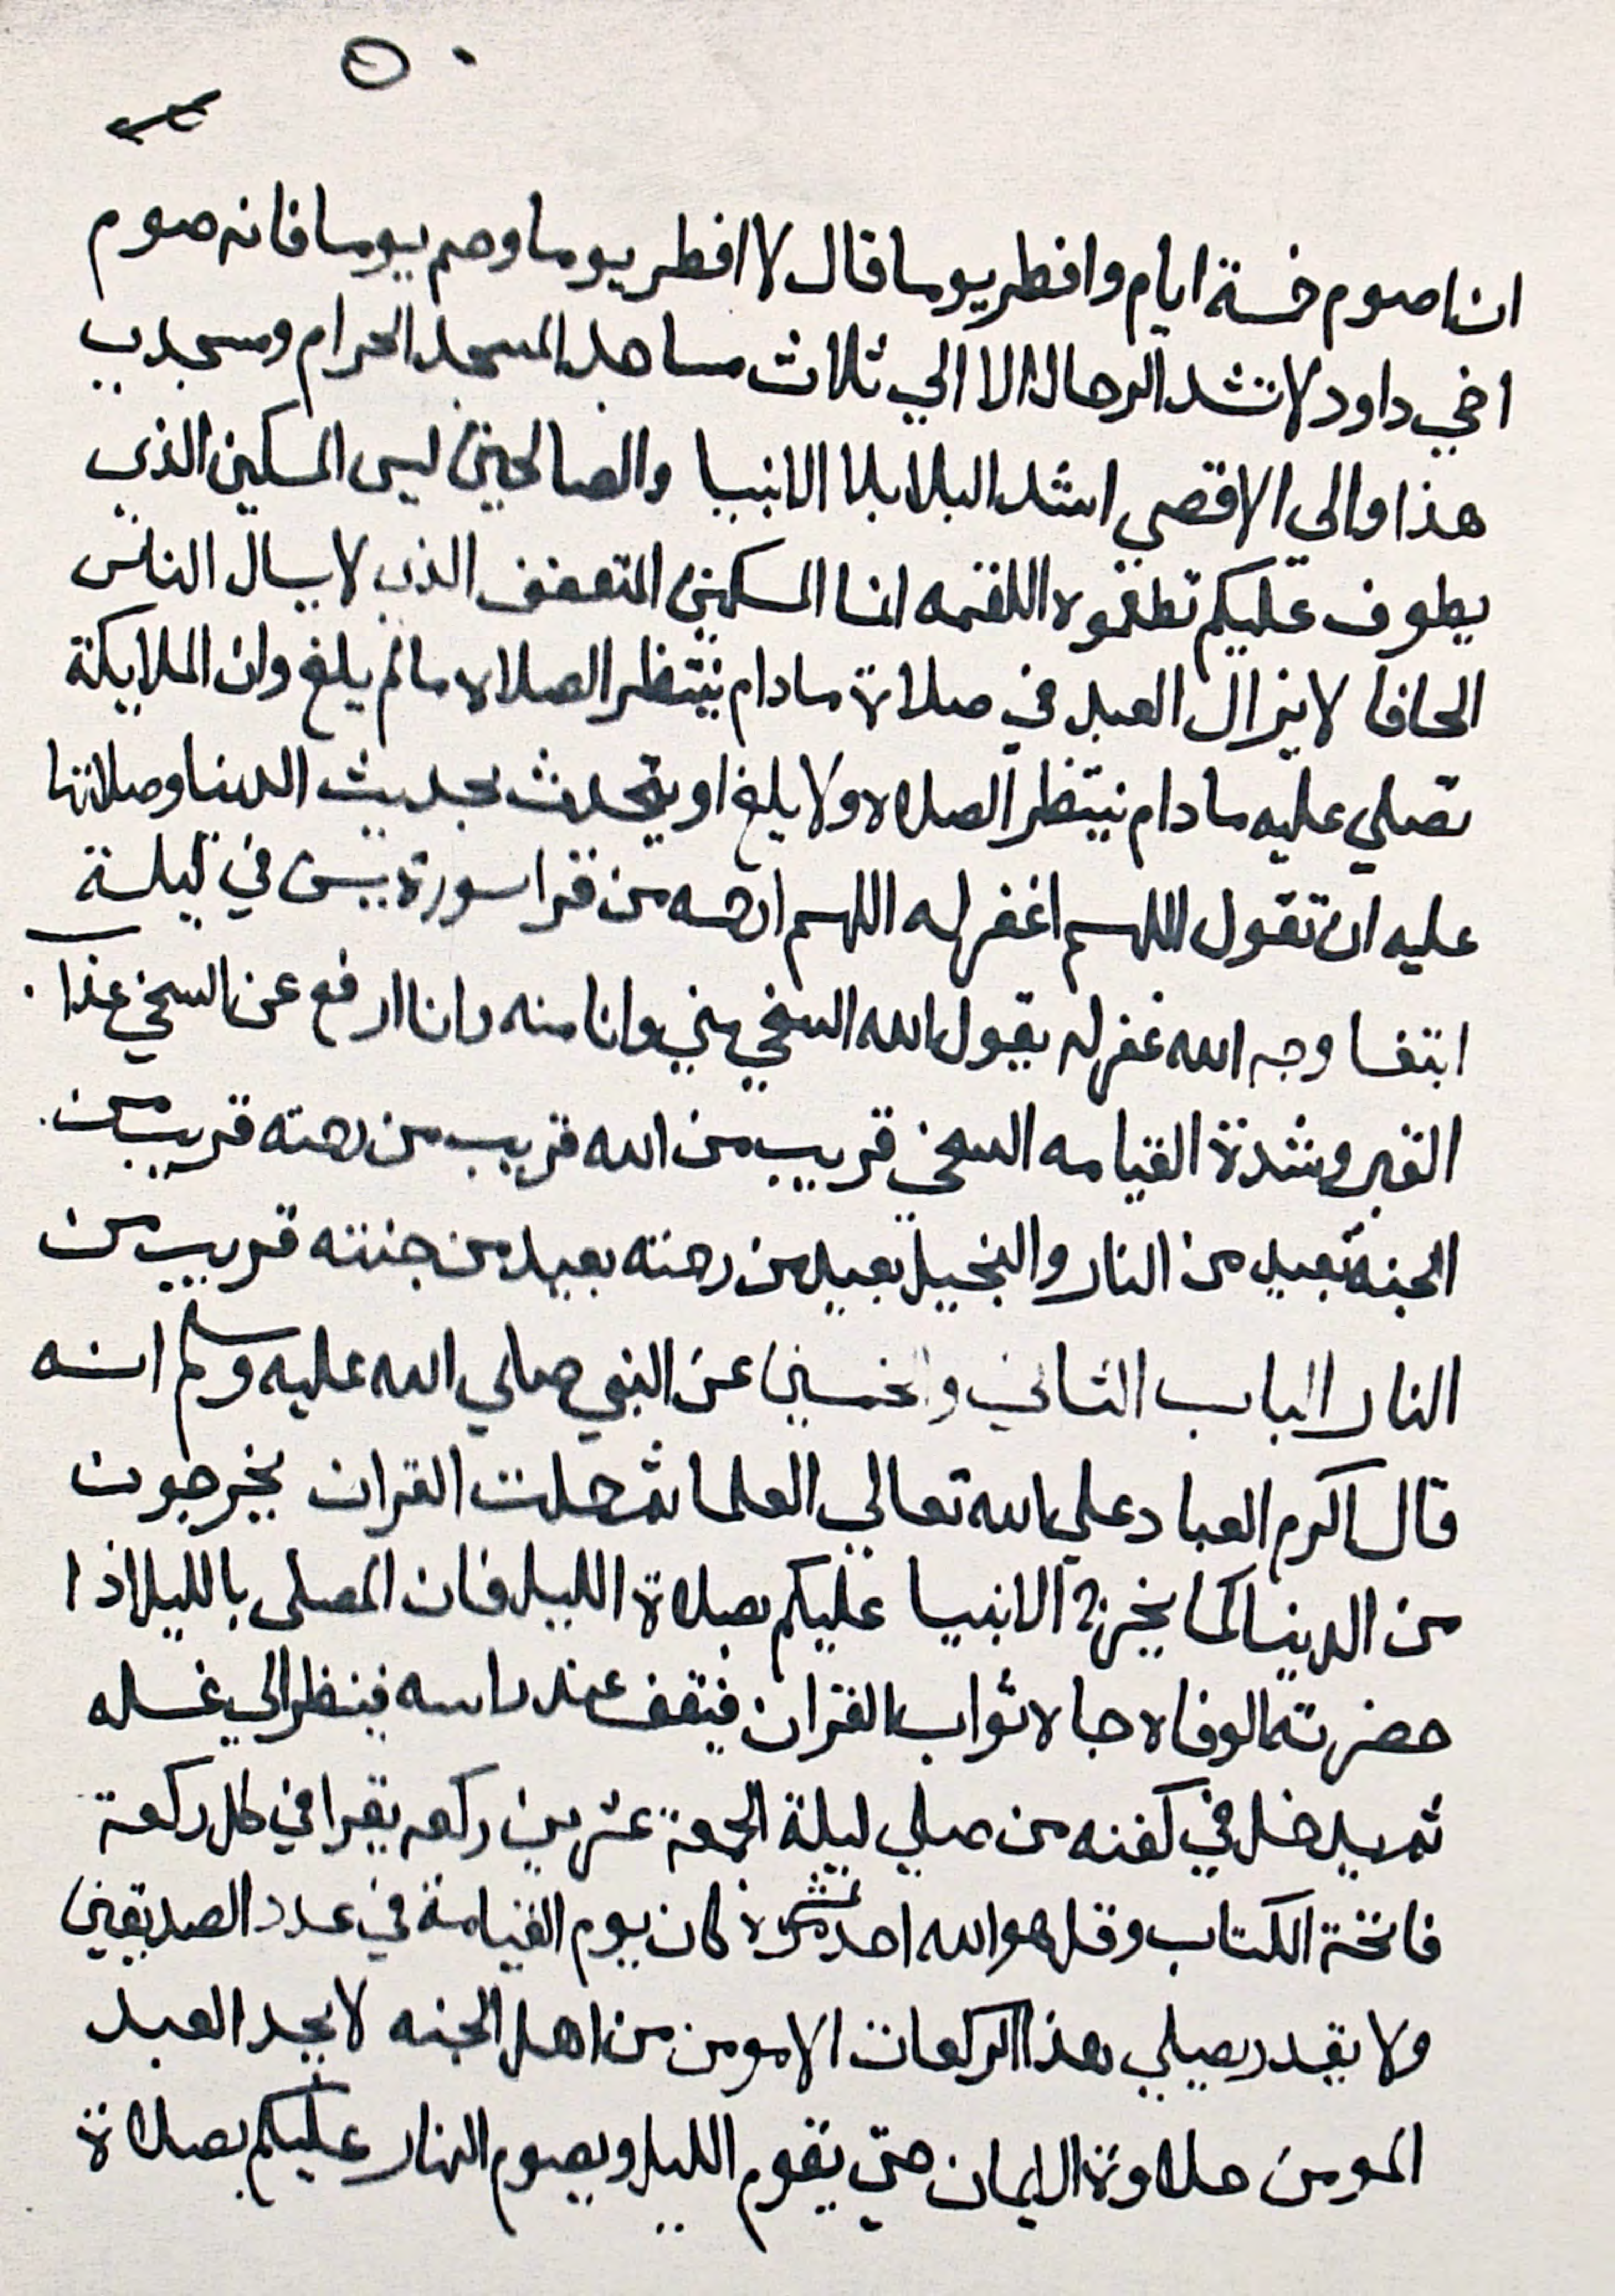 ان اصوم خمسة ايام وافطر يوما قال لا افطر يوما وصم يوما فانه صوم
اخي داود لا تشد الرحال الا الي ثلاث مساجد المسجد الحرام ومسجدي
هذا والى الاقصي اشد البلا بلا الانبيا والصالحين ليس المسكين الذي
يطوف عليكم تطعموه اللقمه انما المسكين المتعفف الذي لا يسال الناس
الحافا لا يزال العبد في صلاة مادام ينتظر الصلاه مالم يلغ وان الملايكة
تصلي عليه مادام ينتظر الصلاه ولا يلغ او يتحدث بحديث الدنيا وصلاتها
عليه ان تقول اللهم اغفر له اللهم ارحمه من قرا سورة يس في ليلة
ابتغا وجه الله غفر له يقول الله السخي مني وانا منه وانا ارفع عن السخي عذاب
القبر وشدة القيامه السخي قريب من الله قريب من رحمته قريب من
الجنه بعيد من النار والبخيل بعيد من رحمته بعيد من جنته قريب من
النار الباب الثاني والخمسين عن النبي صلي الله عليه وسلم انه
قال اكرم العباد علي الله تعالي العلما ثم حملت القران يخرجون
من الدنيا كما يخرج الانبيا عليكم بصلاة الليل فان المصلى بالليل اذا
حضرته الوفاه جاه ثواب القران فيقف عند راسه فينظر الي غسله
ثم يدخل في كفنه من صلي ليلة الجمعة عشرين ركعه يقرا في كل ركعة
فاتحة الكتاب وقل هو الله احد عشر مرة كان يوم القيامة في عدد الصديقين
ولا يقدر يصلي هذا الركعات الا مومن من اهل الجنه لا يجد العبد
المومن حلاوة الايمان حتي يقوم الليل ويصوم النهار عليكم بصلاة